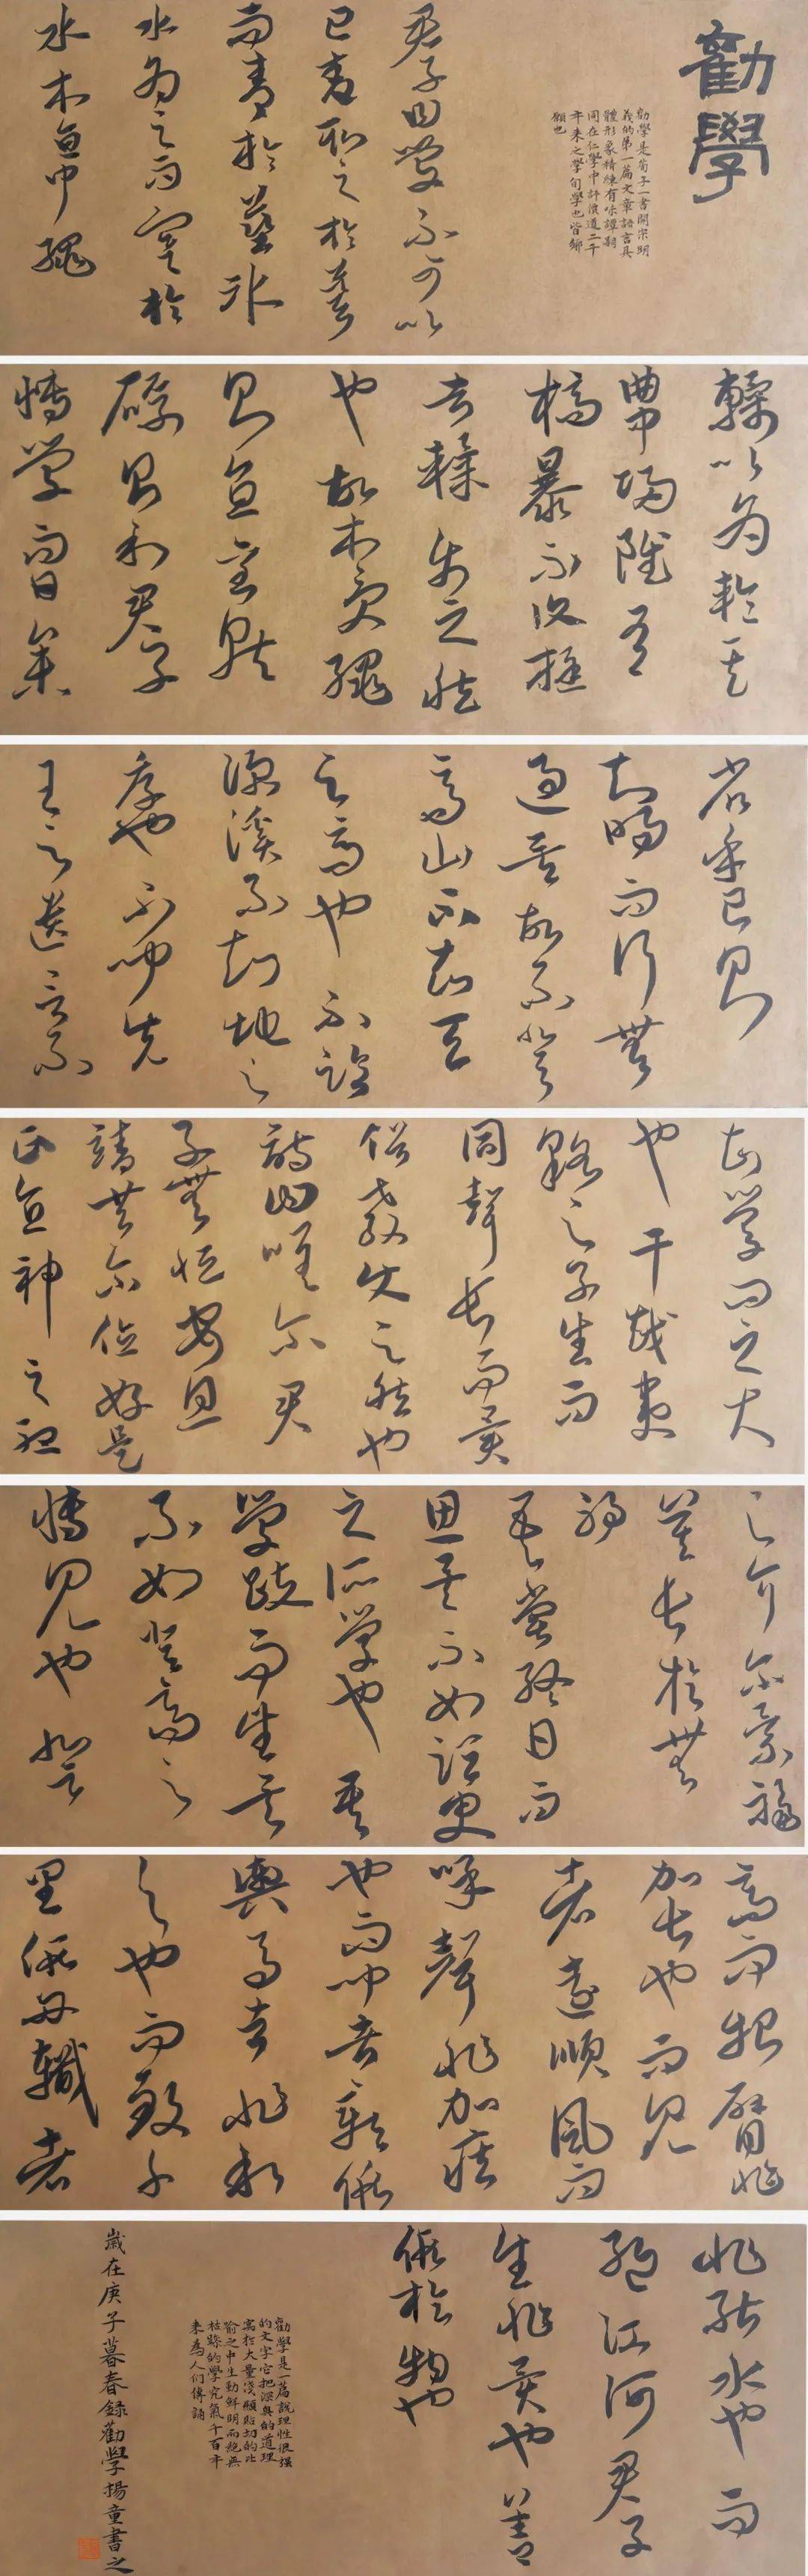 勸學
勸學是荀子一書開宗明
義的第一篇文章語言具
體形象精練有味譚嗣
同在仁學中評價道二千
年來之學旬學也皆鄉
願也
君子曰學不可以
已青取之於藍
而青於藍冰
水為之而寒於
水木直中繩
輮以為輪其
曲中規雖有
槁暴不復挺
者輮使之然
也故木受繩
則直金就
礪則利君子
博學而日參
省乎己則
知明而行無
過矣故不登
高山不知天
之高也不臨
深溪不知地之
厚也不聞先
王之遺言不
知學問之大
也干越夷
貉之子生而
同聲長而異
俗教使之然也
詩曰嗟爾君
子無恆安息
靖共爾位好是
正直神之聽
之介爾景福
莫長於無
禍
吾嘗終日而
思矣不如須臾
之所學也吾
嘗跂而望矣
不如登高之
博見也登
高而招臂非
加長也而見
者遠順風而
呼聲非加疾
也而聞者彰假
輿馬者非利
足也而致千
里假舟檝者
非能水也而
絕江河君子
生非異也善
假於物也
勸學是一篇說理性很強
的文字它把深奧的道理
寓於大量淺顯貼切的比
喻之中生動鮮明而絕無
枯躁的學究氣千百年
來為人们傳誦
歲在庚子暮春錄勸學揚童書之